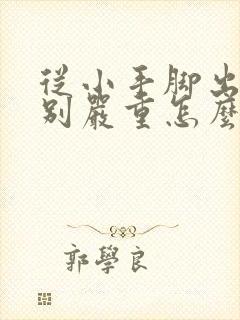 從小手腳出
別嚴重怎麼
郭學良